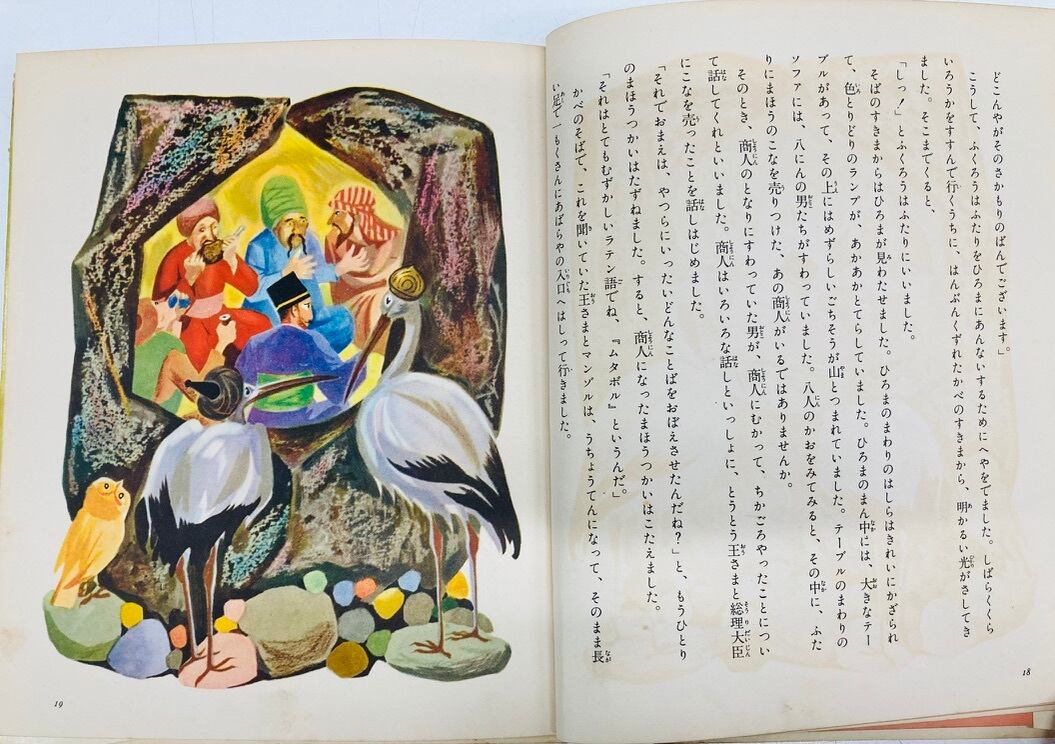 どこんやがそのさかもりのばんでございます」
こうして、ふくろうはふたりをひろまにあんないするためにへやをでました。しばらくくら
いろうかをすすんで行くうちに、はんぶんくずれたかべのすきまから、明かるい光がさしてき
ました。そこまでくると、
「しっ！」とふくろうはふたりにいいました。
そばのすきまからはひろまが見わたせました。ひろまのまわりのはしらはきれいにかざられ
て、色とりどりのランプが、あかあかとてらしていました。ひろまのまん中には、大きなテー
ブルがあって、その上にはめずらしいごちそうが山とつまれていました。テーブルのまわりの
ソファには、八にんの男たちがすわっていました。八人のかおをみてみると、その中に、ふた
りにまほうのこなを売りつけた、あの商人がいるではありませんか。
そのとき、商人のとなりにすわっていた男が、商人にむかって、ちかごろやったことについ
て話してくれといいました。商人はいろいろな話しといっしょに、とうとう王さまと総理大臣
にこなを売ったことを話しはじめました。
「それでおまえは、やつらにいったいどんなことばをおぼえさせたんだね？」と、もうひとり
のまほうつかいはたずねました。すると、商人になったまほうつかいはこたえました。
「それはとてもむずかしいラテン語でね、『ムタボル』というんだ。」
かべのそばで、これを聞いていた王さまとマンゾルは、うちょうてんになって、そのまま長
い足で一もくさんにあばらやの入口へはしって行きました。
18
19